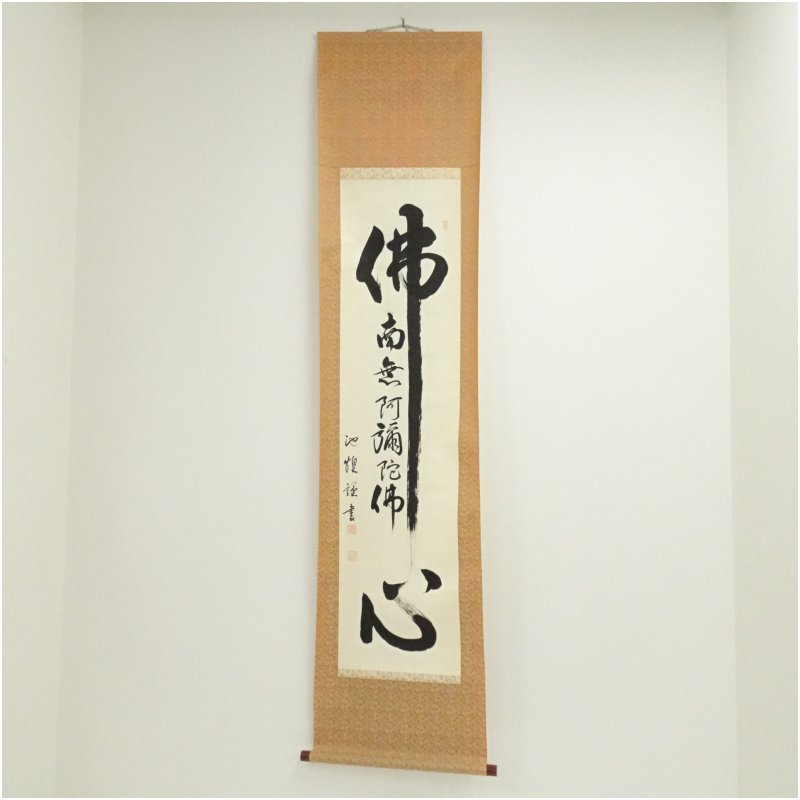 佛心
南無阿彌陀佛
池煌謹書